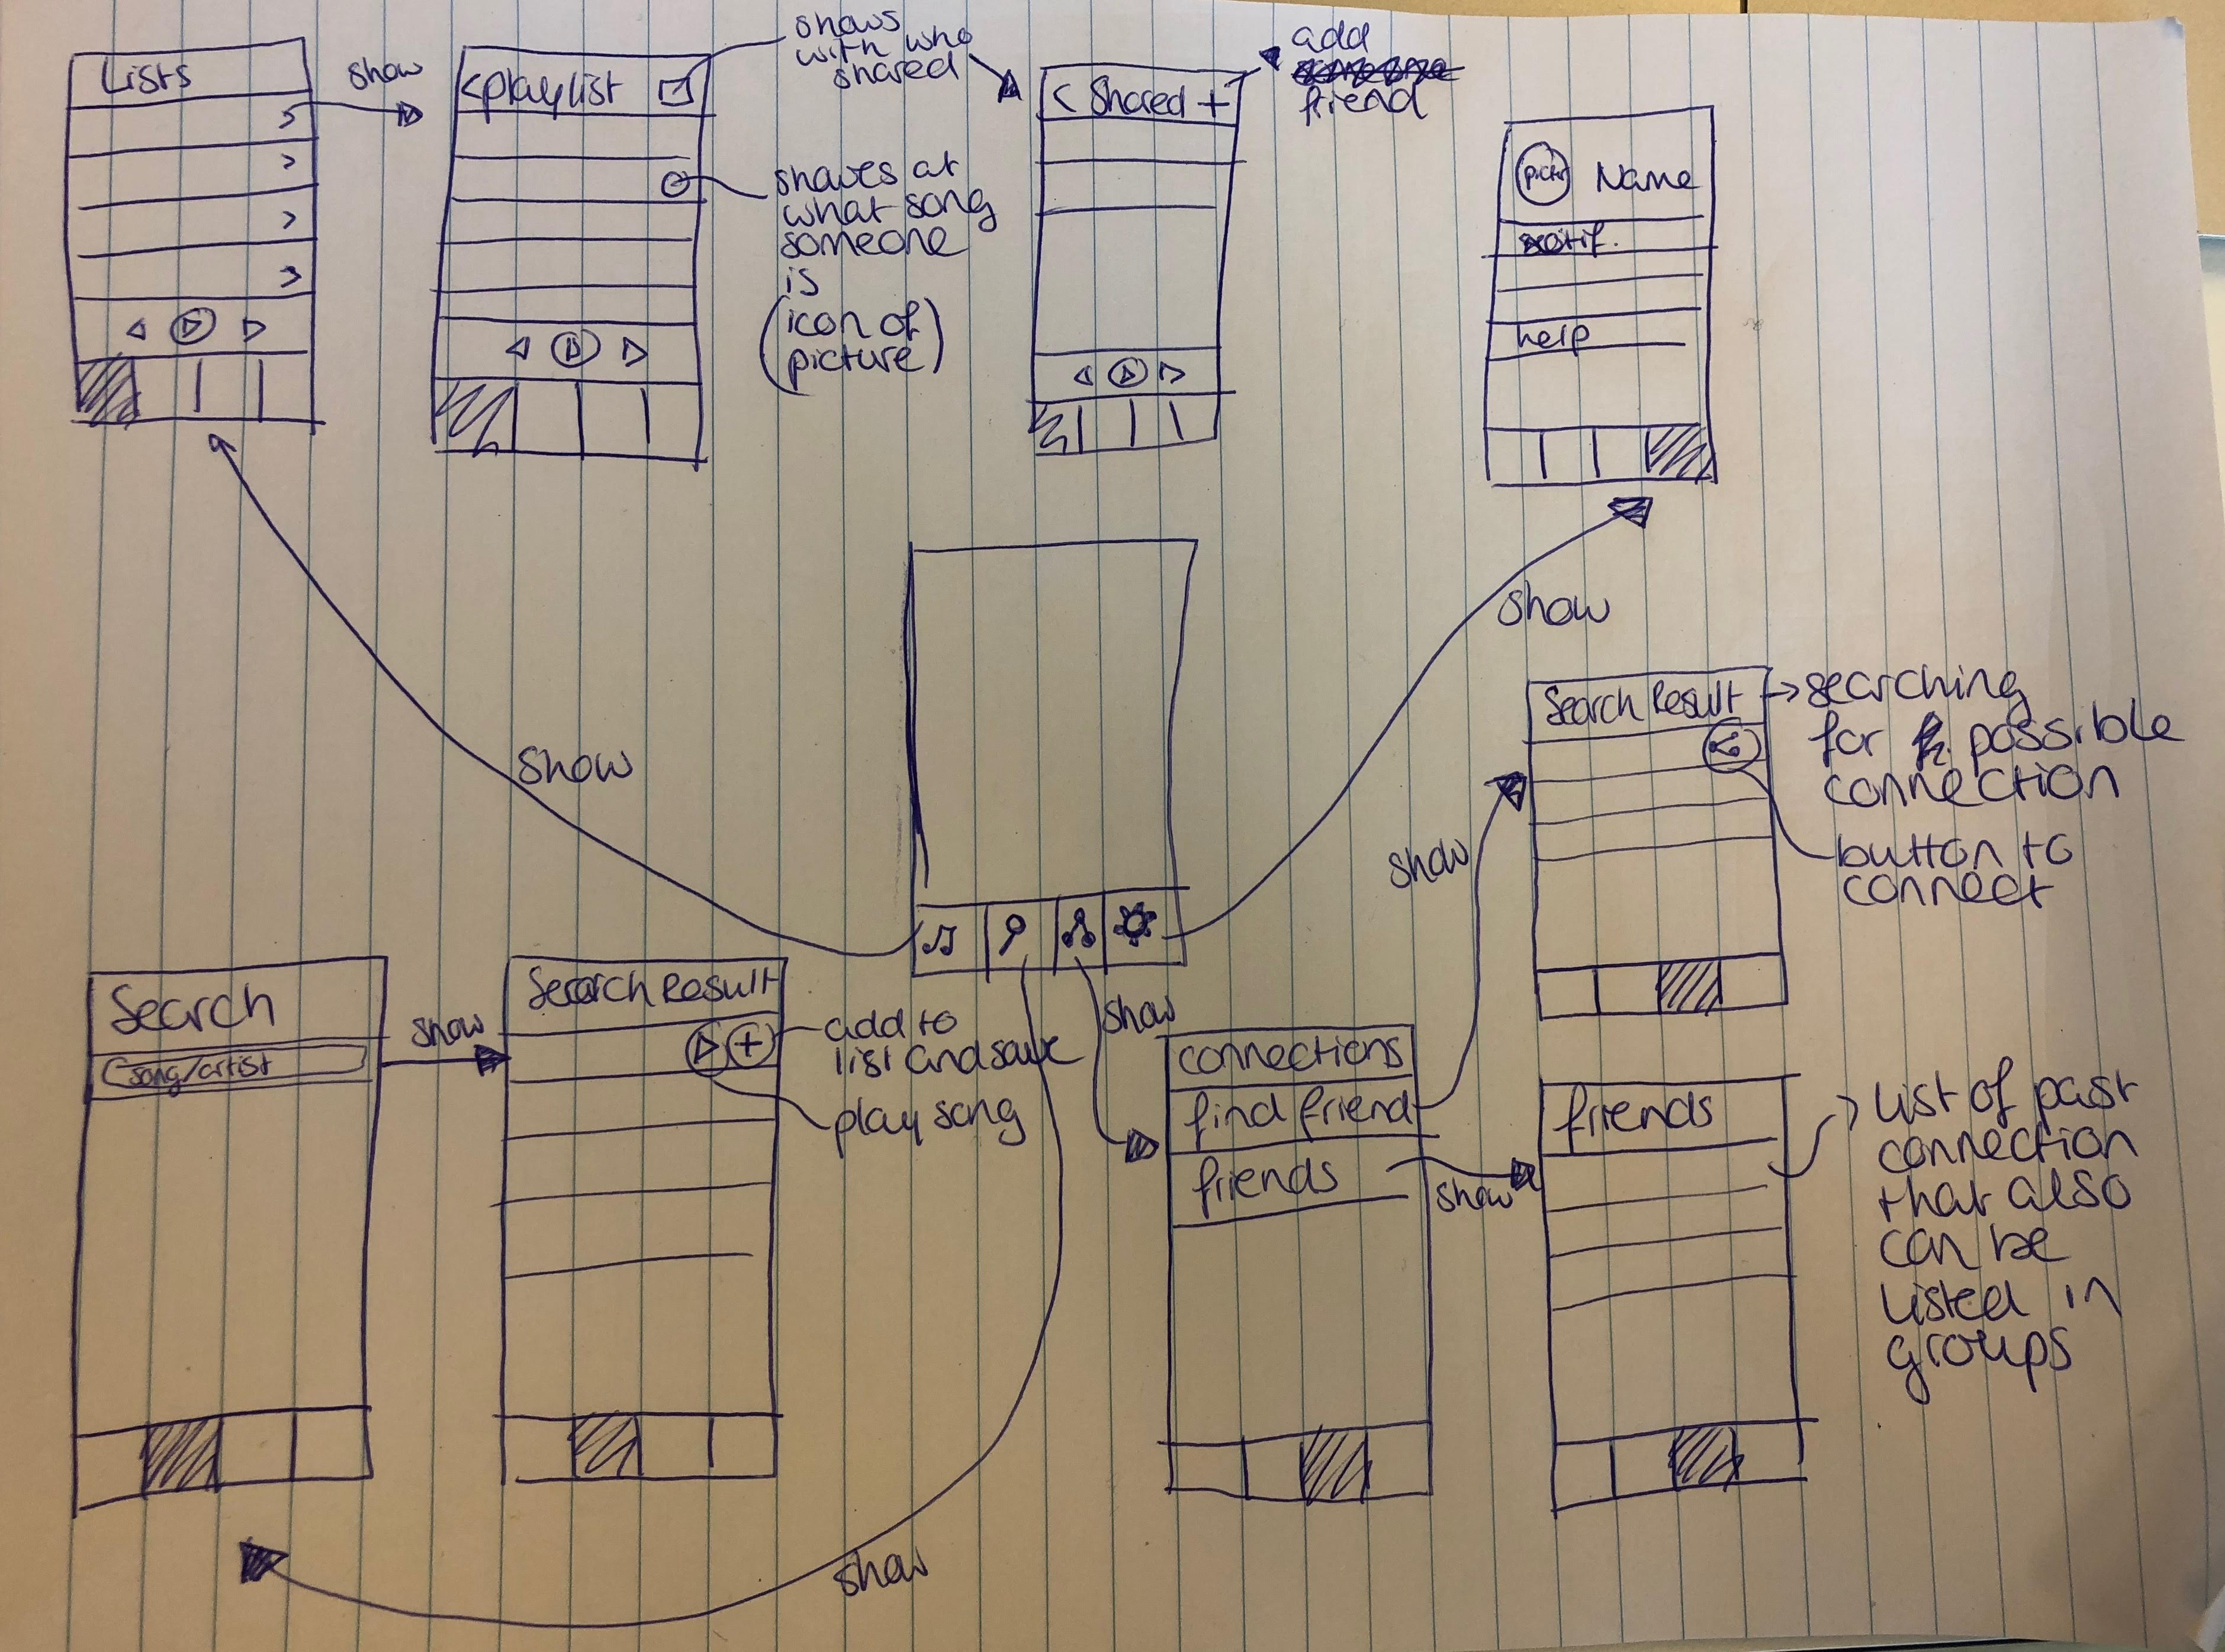 Lists
show
<playlist
shows
with who
shared
< Shared +
add
friend
shaves at
what song
someone
is
(icon of
picture)
Name
notif.
help
show
show
Search Result
searching
for possible
connection
button to
connect
show
Search
song/artist
show
Search Result
add to
list and save
play song
show
connections
find friend
friends
show
friends
list of past
connection
that also
can be
listed in
groups
show